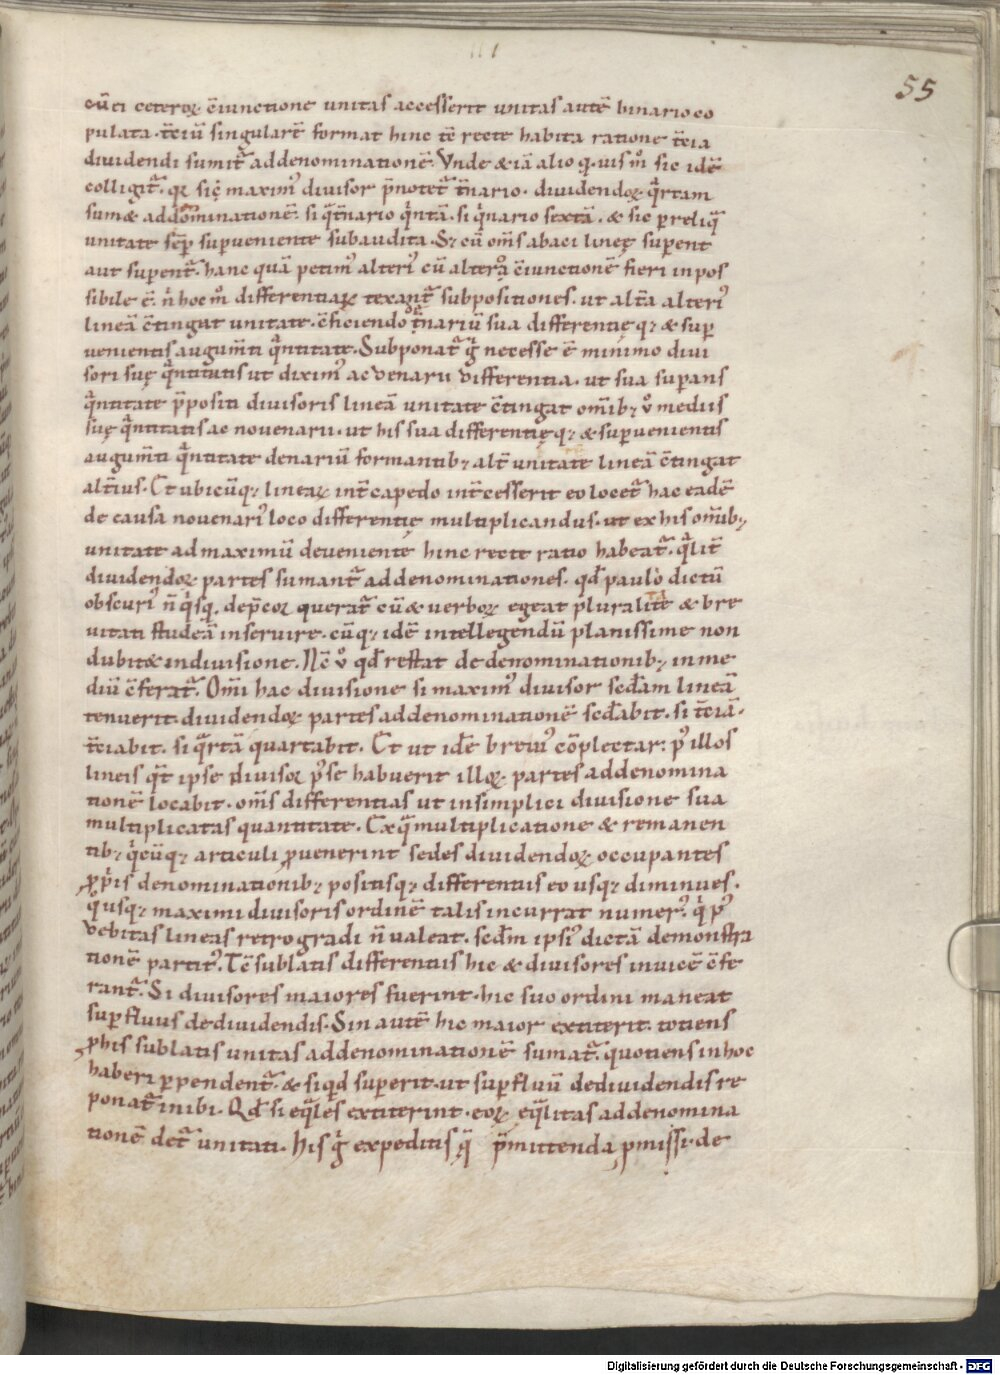 55
cūcī ceteroꝝ. c̄iunctione unitas accesserit unitas autē binario co
pulata. t̄ciū singularit̄ format hinc tē recte habita ratione t̄cia
diuidendi sumit᷑ addenominationē. Vnde &iā alio q. uis m̊ sic idē
colligit᷑. qꝛ sicę maxim᷒ diuisor p̄notet᷑ t̄nario. diuidendoꝝ. q̄rtam
sum& addominationē. si q̄t̄nario q̄ntā. si q̄nario sextā. & sic p̱reliq̄
unitate sēp sup̱ueniente subaudita. S; cū om̄s abaci lineę sup̱ent
aut sup̱ent᷑. hanc quā petim᷒ alteri᷒ cū alteró c̄iunctionē fieri inpos
sibile ē. n̄ hoc m̊ differentiaꝝ texant᷑ subpositiones. ut alt̄a alteri᷒
lineā c̄tingat unitate. c̄ficiendo t̄nariū sua differentięq; & sup̱
uenientis augum̄ti q̄ntitate. Subponat᷑ g̊ necesse ē minimo diui
sori suę q̄ntitatis ut dixim᷒ ac venarii differentia. ut sua sup̱ans
q̄ntitate p̄positi diuisoris lineā unitate c̄tingat om̄ib; ů mediis
suę q̄ntitatis ac nouenarii. ut his sua differentięq; & sup̱uenientis
augum̄ti q̄ntitate denariū formantib; alt̄ unitate lineā c̄tingat
alt̄ius. Et ubicūq; lineaꝝ int̄capedo int̄cesserit eo locet᷑ hac eadē
de causa nouenari᷒ loco differentię multiplicandus. ut ex his om̄ib;
unitate ad maximū deueniente hinc recte ratio habeat᷑. q̄lit̄
diuidendoꝝ partes sumant᷑ addenominationes. qđ paulo dictū
obscuri᷒ n̄ q̊sq. dep̄coꝛ querat᷑ cū & uerboꝝ egeat pluralitē & bre
uitati studeā inseruire. cūq; idē intellegendū planissime non
dubit& indiuisione. Nē ů qđ restat de denominationib; inme
diū c̄ferat᷑. Om̄i hac diuisione si maxim᷒ diuisor sc̄dam lineā
tenuerit. diuidendoꝝ partes addenominationē sc̄dabit. si t̄ciā.
t̄ciabit. si q̄rtā quartabit. Et ut idē breui᷒ cōplectar: p᷒ illos
lineis q̄t ipse diuisoꝛ p᷒se habuerit illoꝝ. partes addenomina
tionē locabit. om̄s differentias ut insimplici diuisione sua
multiplicatas quantitate. Exq̄ multiplicatione & remanen
tib; q̊cūq; articuli ꝓuenerint sedes diuidendoꝝ occupantes
ꝓp̊is denominationib; positisq; differentiis eo usq; diminues.
q̊usq; maximi diuisoris ordinē talis incurrat numer᷒. q̊ p᷒
debitas lineas retrogradi n̄ ualeat. sc̄dm ipsi᷒ dictā demonstra
tionē partit᷒. Tē sublatis differentiis hic & diuisores inuicē c̄fe
rant᷑. Si diuisores maiores fuerint. hic suo ordini maneat
sup̱fluus dediuidendis. Sin autē hic maior extiterit. totiens
p̱ his sublatis unitas addenominationē sumat᷑. quotiens inhoc
haberi p̱pendent᷑. & siqđ sup̱erit. ut sup̱fluū dediuidendis re
ponat᷑ inibi. Qđ si eq̄les extiterint. eoꝝ. eq̄litas addenomina
tionē det᷑ unitati. His g̊ expeditis q̄ p̄mittenda p̱missi. de
Digitalisierung gefördert durch die Deutsche Forschungsgemeinschaft - DFG